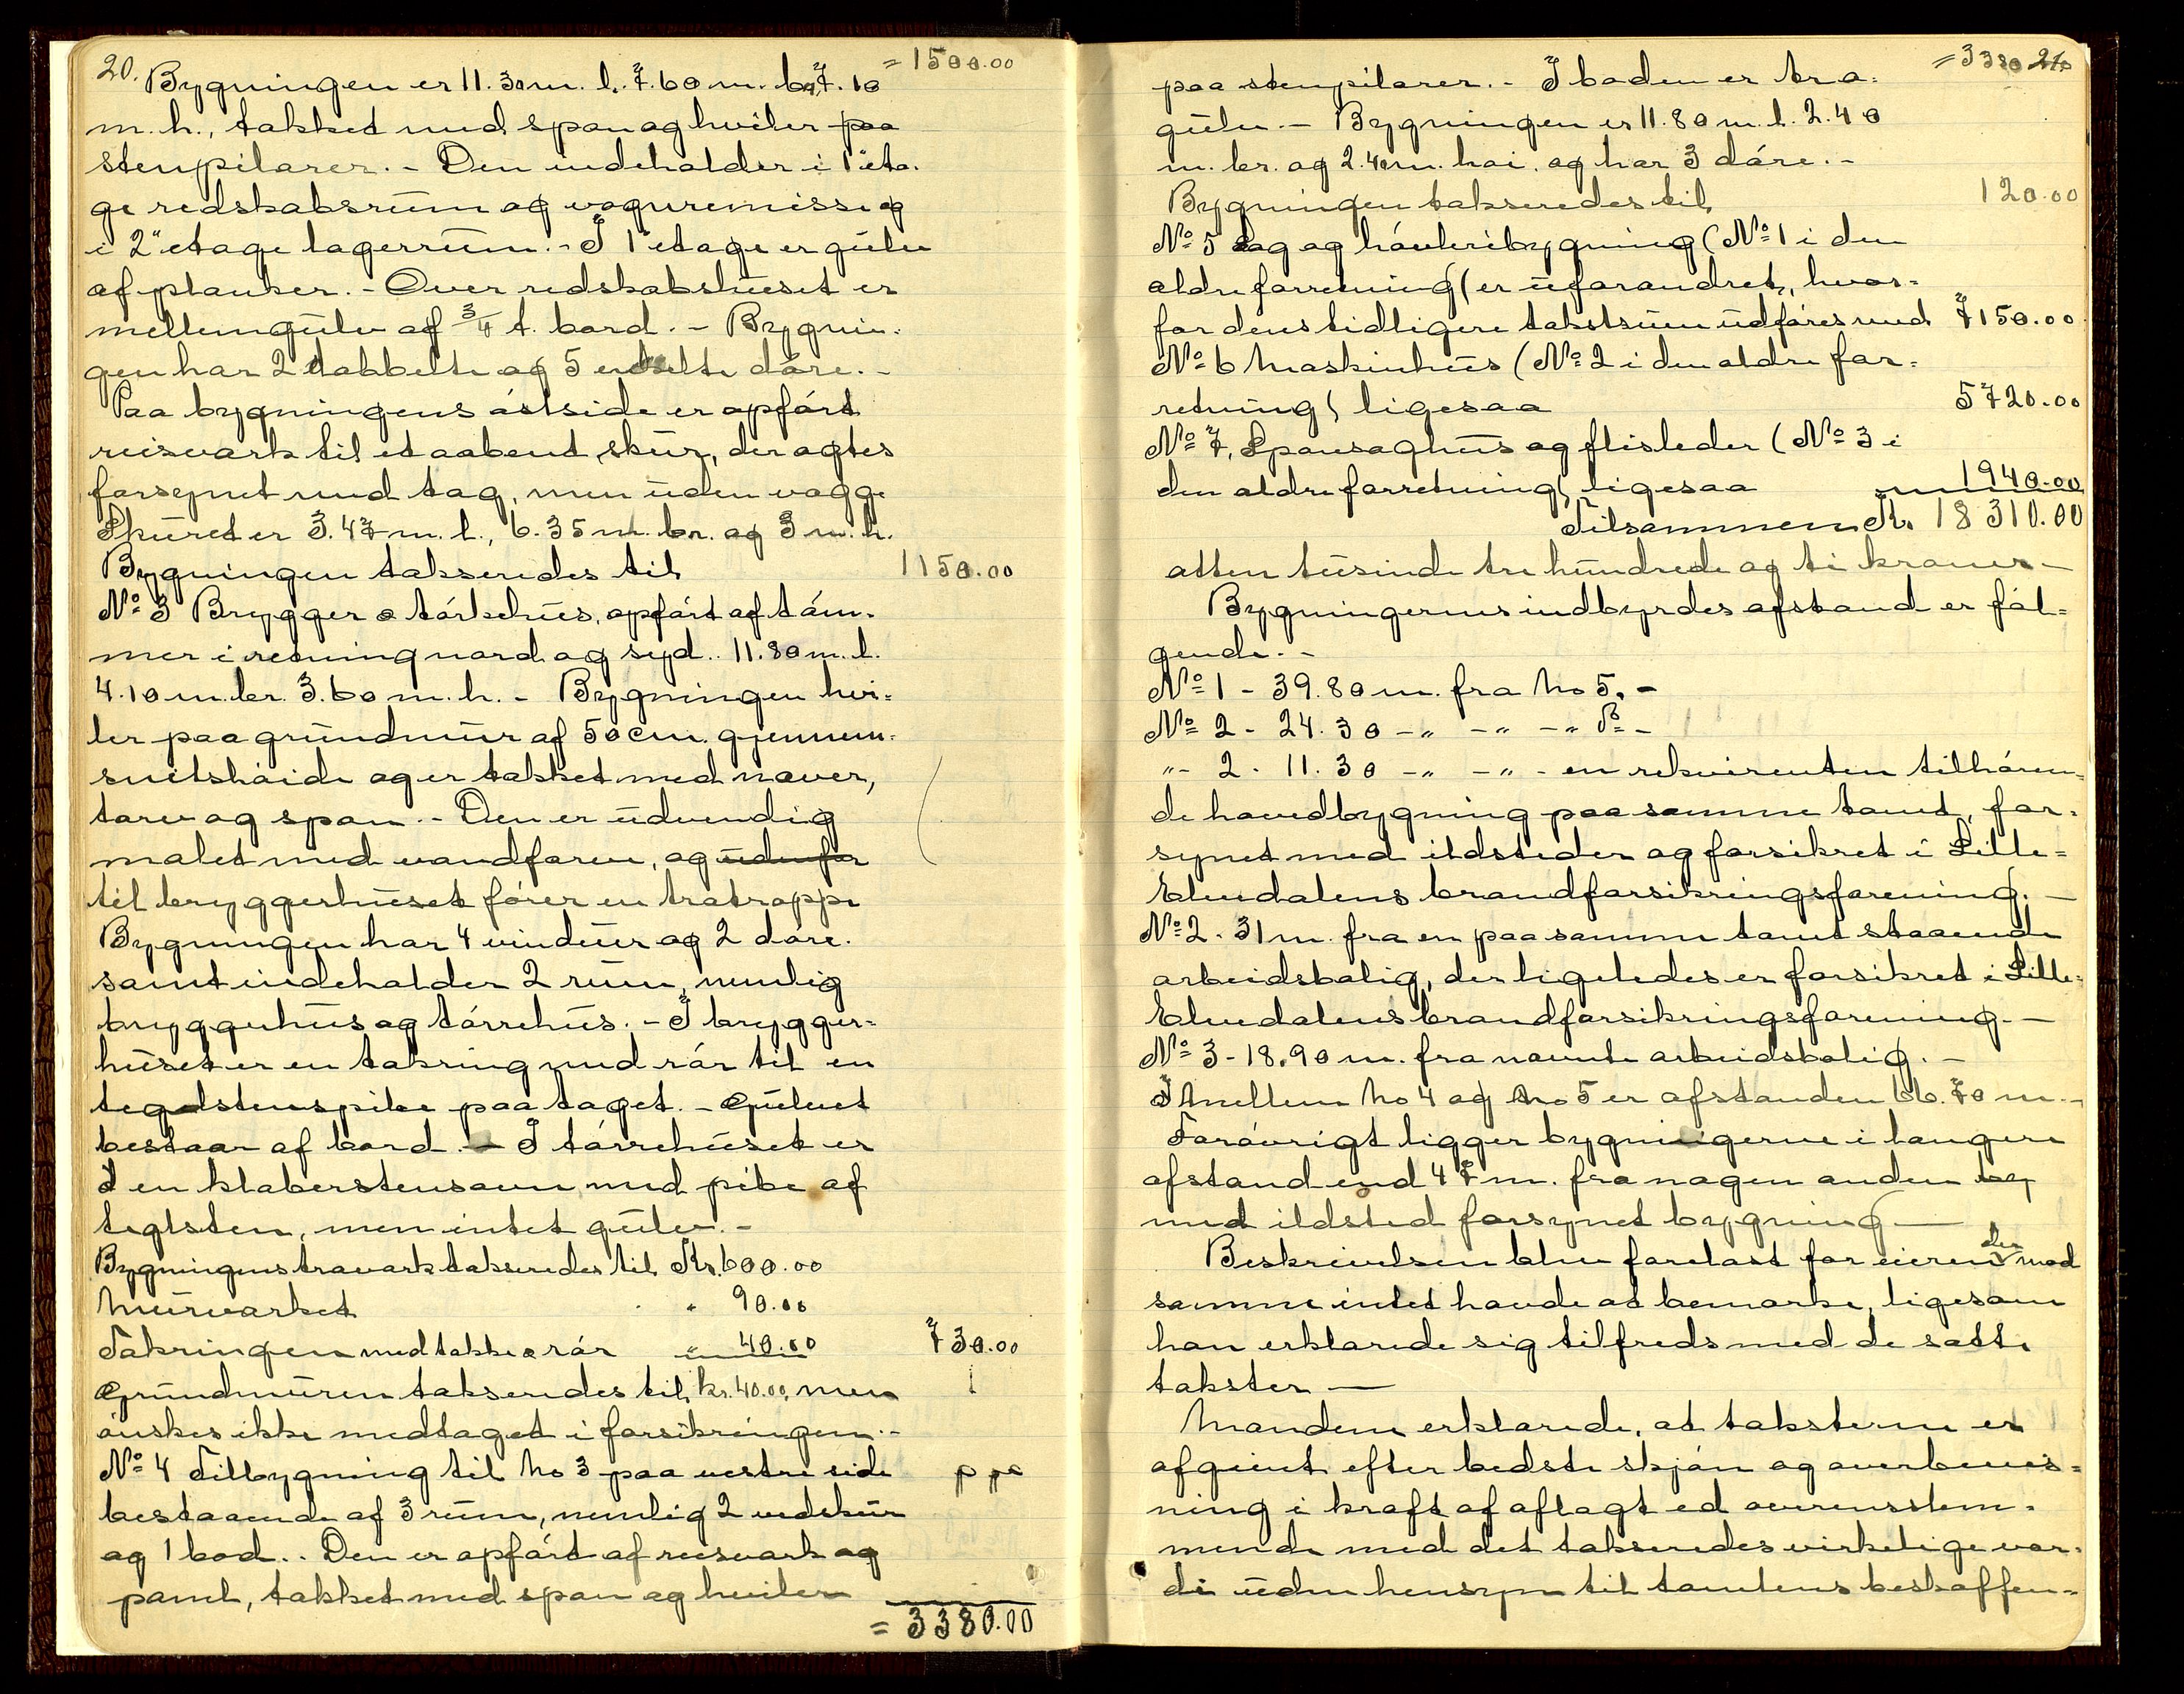 20.
= 1500.00
Bygningen er 11.30 m. l. 7.60 m. br. 7.10
m. h., tækket med spon og hviler paa
stenpilarer. - Den indeholder i 1" eta-
ge redskabsrum og vognremisse og
i 2" etage lagerrum. - I 1" etage er gulv
af planker. - Over redskabshuset er
mellemgulv af 3/4 t. bord. - Bygnin-
gen har 2 dobbelte og 5 enkelte døre. -
Paa bygningens østside er opført
reisværk til et aabent skur, der agtes
forsynet med tag, men uden vægge
Skuret er 3.47 m. l., 6.35 m. br. og 3 m. h.
Bygningen takseredes til 1150.00
No 3 Brygger & tørkehus, opført af tøm-
mer i retning nord og syd.. 11.80 m. l.
4.10 m. br. 3.60 m. h. - Bygningen hvi-
ler paa grundmur af 50 cm. gjennem-
snitshøide og er tækket med næver,
torv og spon. - Den er udvendig
malet med vandfarve, og udenfor
til bryggerhuset fører en trætrappe
Bygningen har 4 vinduer og 2 døre.
samt indeholder 2 rum, nemlig
bryggerhus og tørrehus. - I brygger-
huset er en takring med rør til en
teglstenspibe paa taget. - Gulvet
bestaar af bord. - I tørrehuset er
en kleberstensovn med pibe af
teglsten, men intet gulv. -
Bygningens træværk takseredes til Kr. 600.00
Murværket " 90.00
Takringen med takke & rør " 40.00 730.00
Grundmuren takseredes til kr. 40.00, men
ønskes ikke medtaget i forsikringen. -
No 4 Tilbygning til No 3 paa vestre side
bestaaende af 3 rum, nemlig 2 vedskur
og 1 bod.. Den er opført af reisværk og
panel, tækket med spon og hviler
= 3380.00
= 3380 21.
paa stenpilarer. - I boden er træ-
gulv. - Bygningen er 11.80 m. l. 2.40
m. br. og 2.40 m. høi, og har 3 døre. -
Bygningen takseredes til 120.00
No 5 Sag og høvleribygning (No 1 i den
ældre forretning) er uforandret, hvor-
for dens tidligere takstsum udføres med 7150.00
No 6 Maskinhus (No 2 i den ældre for-
retning) ligesaa 5720.00
No 7, Sponsaghus og flisleder (No 3 i
den ældre forretning) ligesaa 1940.00
Tilsammen Kr. 18310.00
atten tusinde tre hundrede og ti kroner -
Bygningernes indbyrdes afstand er føl-
gende. -
No 1 - 39.80 m. fra No 5. -
No 2 - 24.30 -" -" -" 5 -
"- 2 - 11.30 -" -" - en rekvirenten tilhøren-
de hovedbygning paa samme tomt, for-
synet med ildsteder og forsikret i Lille-
Elvedalens brandforsikringsforening. -
No 2 - 31 m. fra en paa samme tomt staaende
arbeidsbolig, der ligeledes er forsikret i Lille-
Elvedalens brandforsikringsforening. -
No 3 - 18.90 m. fra nævnte arbeidsbolig. -
Imellem No 4 og No 5 er afstanden 66.70 m. -
Forøvrigt ligger bygningerne i længere
afstand end 47 m. fra nogen anden
med ildsted forsynet bygning -
Beskrivelsen blev forelæst for eieren der mod
samme intet havde at bemærke, ligesom
han erklærede sig tilfreds med de satte
takster -
Mændene erklærede, at taksterne er
afgivet efter bedste skjøn og overbevis-
ning i kraft af aflagt ed overensstem-
mende med det takseredes virkelige vær-
di uden hensyn til tomtens beskaffen-